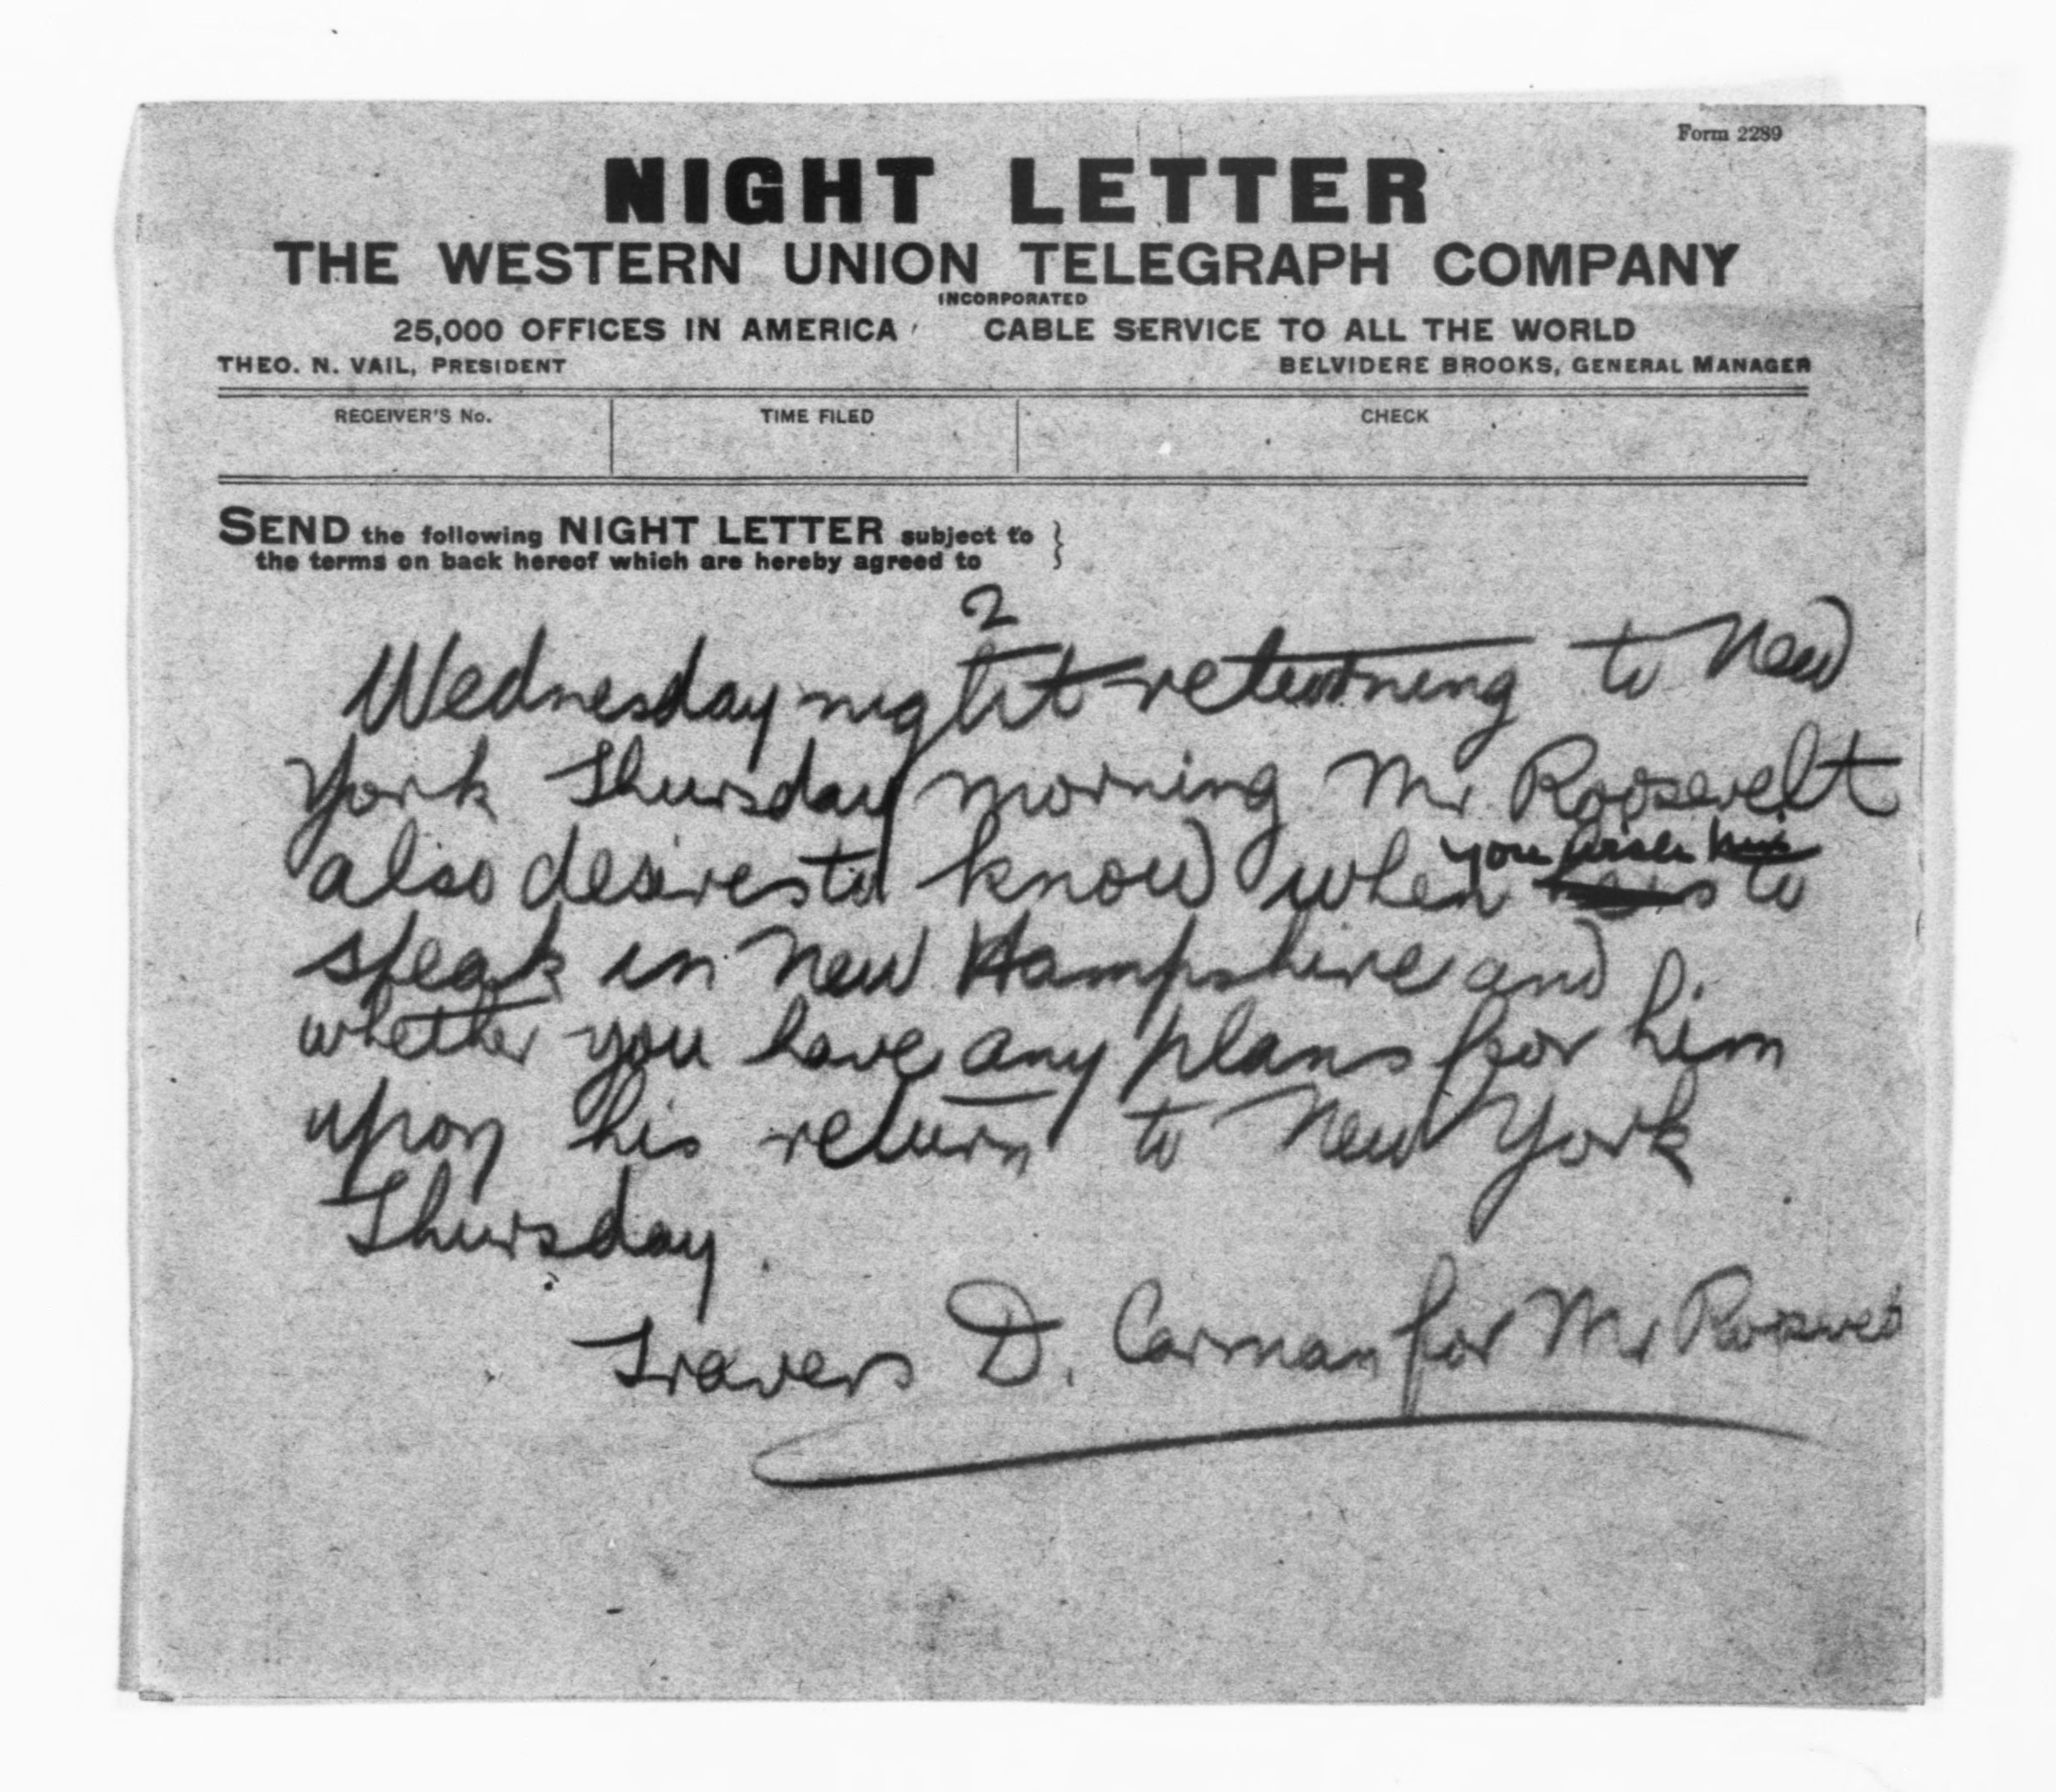 Form 2289
NIGHT LETTER
THE WESTERN UNION TELEGRAPH COMPANY
INCORPORATED
25,000 OFFICES IN AMERICA CABLE SERVICE TO ALL THE WORLD
THEO. N. VAIL, PRESIDENT BELVIDERE BROOKS, GENERAL MANAGER
RECEIVER'S No. TIME FILED CHECK
SEND the following NIGHT LETTER subject to }
the terms on back hereof which are hereby agreed to
2
Wednesday night returning to New
York Thursday morning Mr Roosevelt
you wish him
also desires to know when to
speak in New Hampshire and
whether you have any plans for him
upon his return to New York
Thursday.
Travers D. Carman for Mr Roosevelt